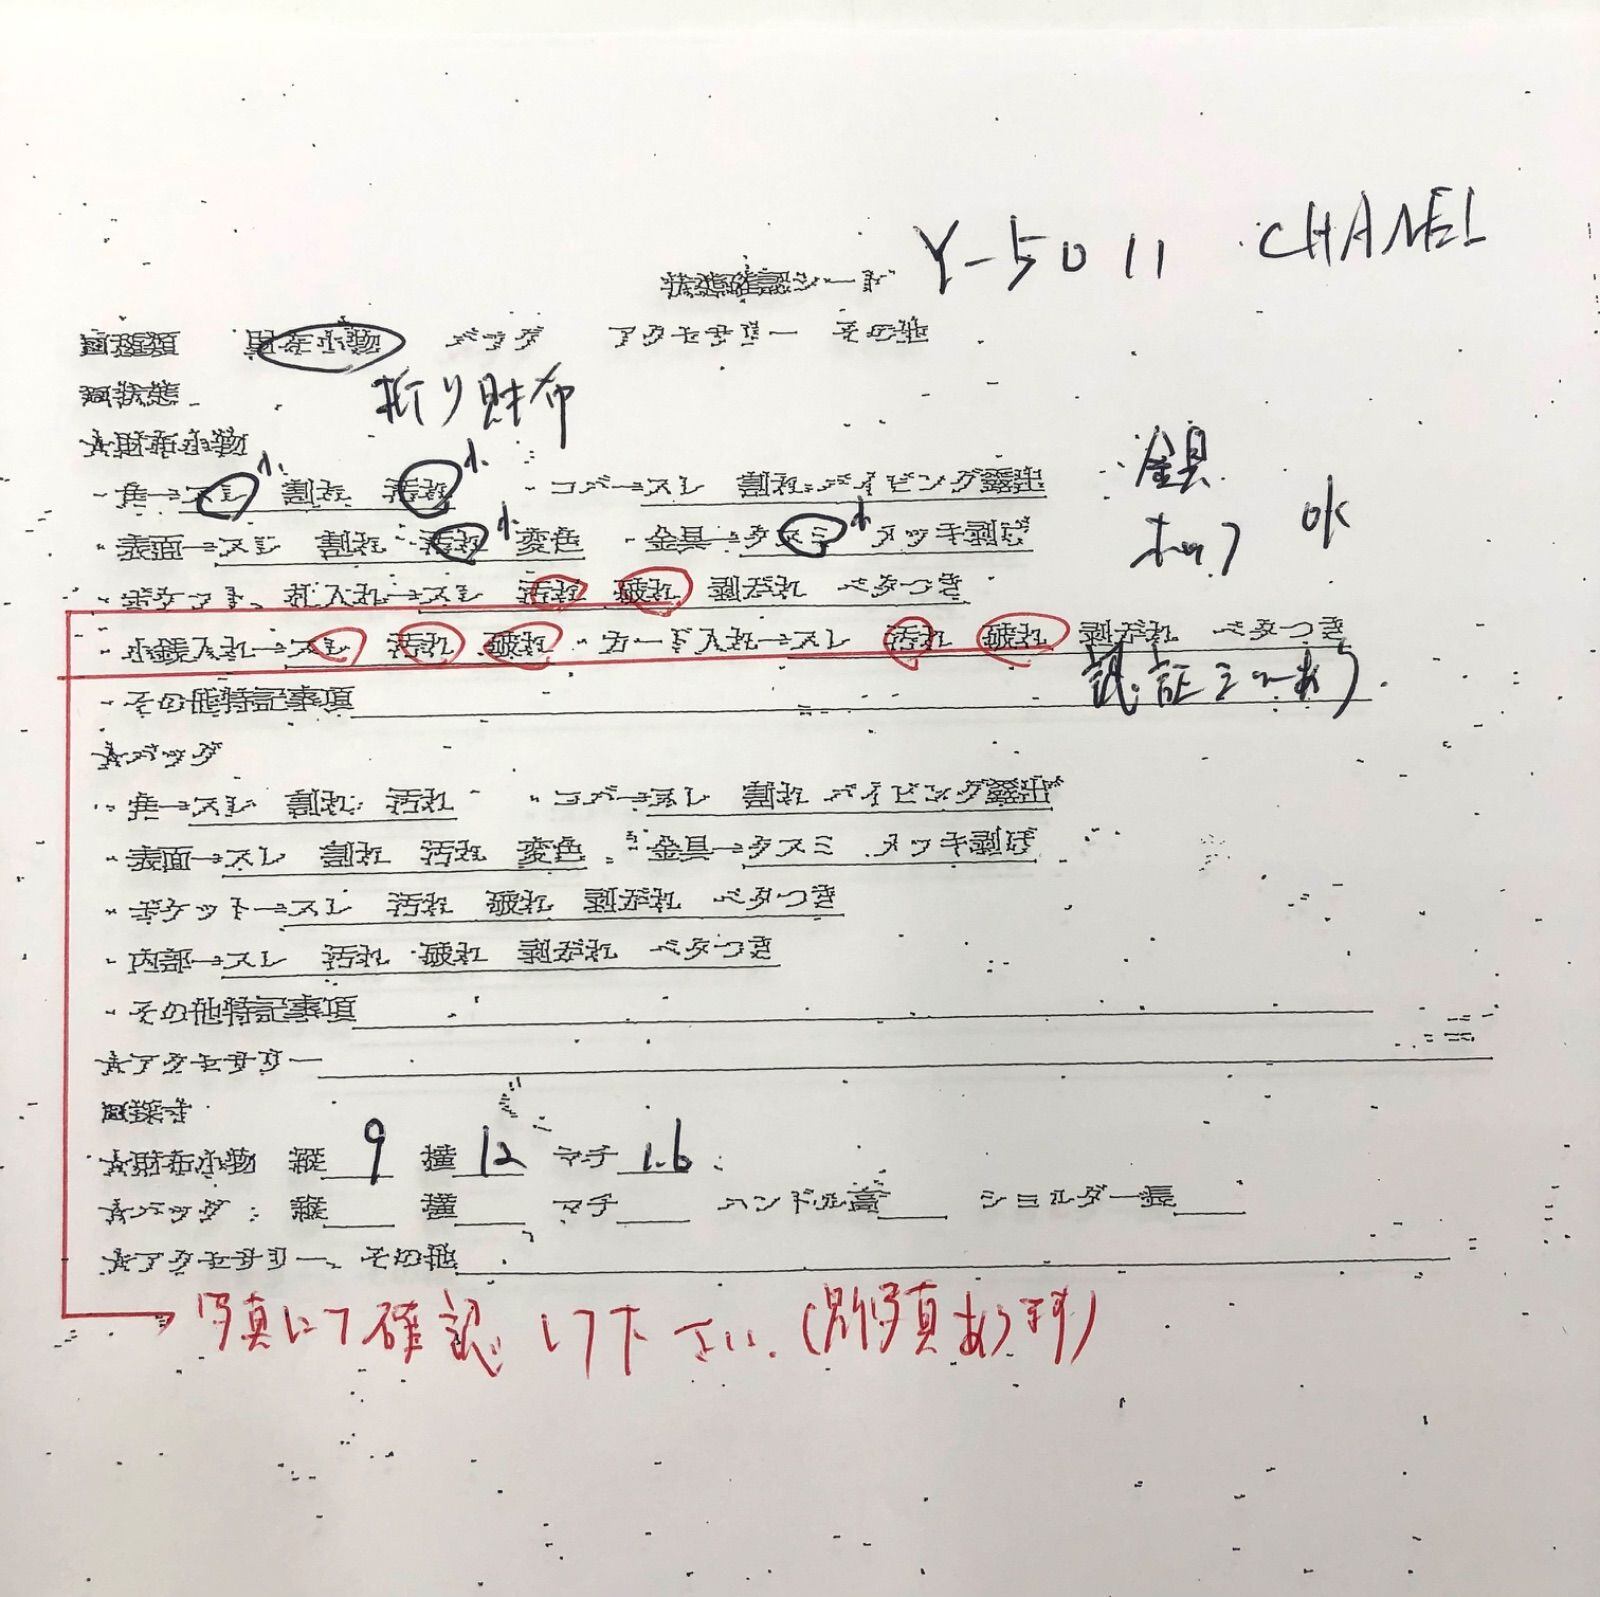 Y-5011 CHANEL
状態確認シート
□種類 財布小物 バッグ アクセサリー その他
□状態
折り財布
★財布小物
・角→スレ 割れ 汚れ ・コバ→スレ 割れ パイピング露出
小 小
金具
・表面→スレ 割れ 汚れ 変色 ・金具→クスミ メッキ剥げ
小 小
ホック OK
・ポケット、札入れ→スレ 汚れ 破れ 剥がれ ベタつき
・小銭入れ→スレ 汚れ 破れ ・カード入れ→スレ 汚れ 破れ 剥がれ ベタつき
・その他特記事項
★バッグ
・角→スレ 割れ 汚れ ・コバ→スレ 割れ パイピング露出
・表面→スレ 割れ 汚れ 変色 ・金具→クスミ メッキ剥げ
・ポケット→スレ 汚れ 破れ 剥がれ ベタつき
・内部→スレ 汚れ 破れ 剥がれ ベタつき
・その他特記事項
★アクセサリー
□採寸
★財布小物 縦 9 横 12 マチ 1.6
★バッグ 縦 横 マチ ハンドル高 ショルダー長
★アクセサリー、その他
写真にて確認して下さい。(別写真あります)